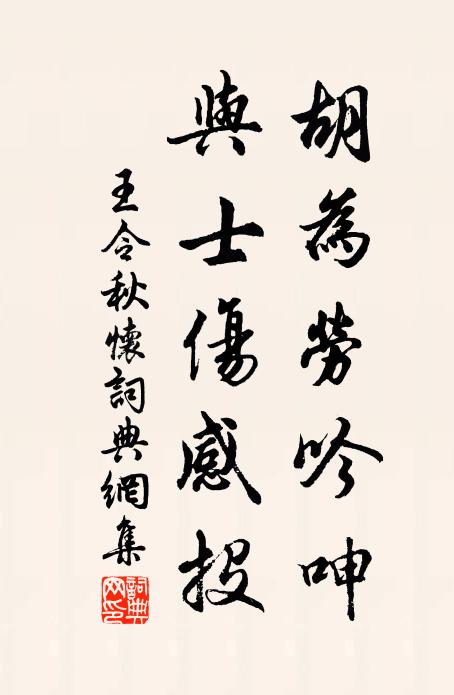 胡為勞吟呻
與士傷感投
王令秋懷詞典網集
詞典網印